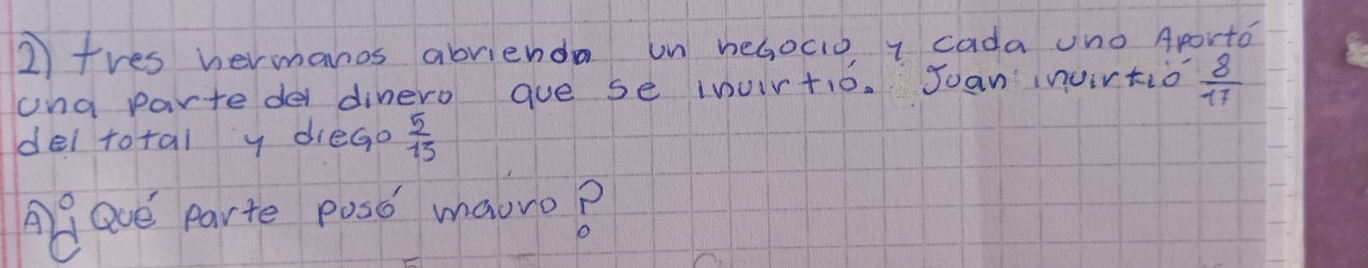 2) tres hermanos abriendo un negocio y cada uno Aportó
una parte del dinero que se invirtió. Juan invirtió 8/17
del total y diego 5/13
A) ¿Qué parte pusó mauro?